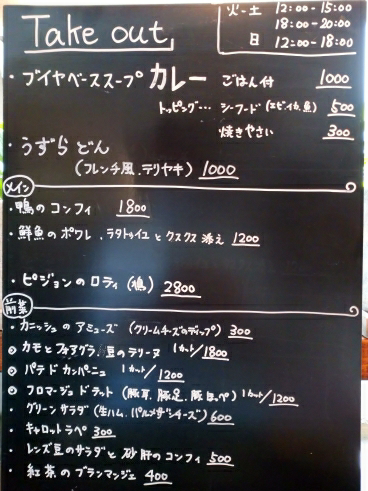 Take out
火-土 12:00-15:00
18:00-20:00
日 12:00-18:00
・ブイヤベーススープカレー ごはん付 1000
トッピング… シーフード(エビ,イカ,魚) 500
焼きやさい 300
・うずらどん
(フレンチ風、テリヤキ) 1000
メイン
・鴨のコンフィ 1800
・鮮魚のポワレ、ラタトゥイユとクスクス添え 1200
・ピジョンのロティ(鳩) 2800
前菜
・カニッシュのアミューズ(クリームチーズのディップ) 300
◎カモとフォアグラ、豆のテリーヌ 1カット/1800
◎パテドカンパーニュ 1カット/1200
◎フロマージュドテット(豚耳、豚足、豚ほっペ) 1カット/1200
・グリーンサラダ(生ハム、パルメザンチーズ) 600
・キャロットラペ 300
・レンズ豆のサラダと砂肝のコンフィ 500
・紅茶のブランマンジェ 400